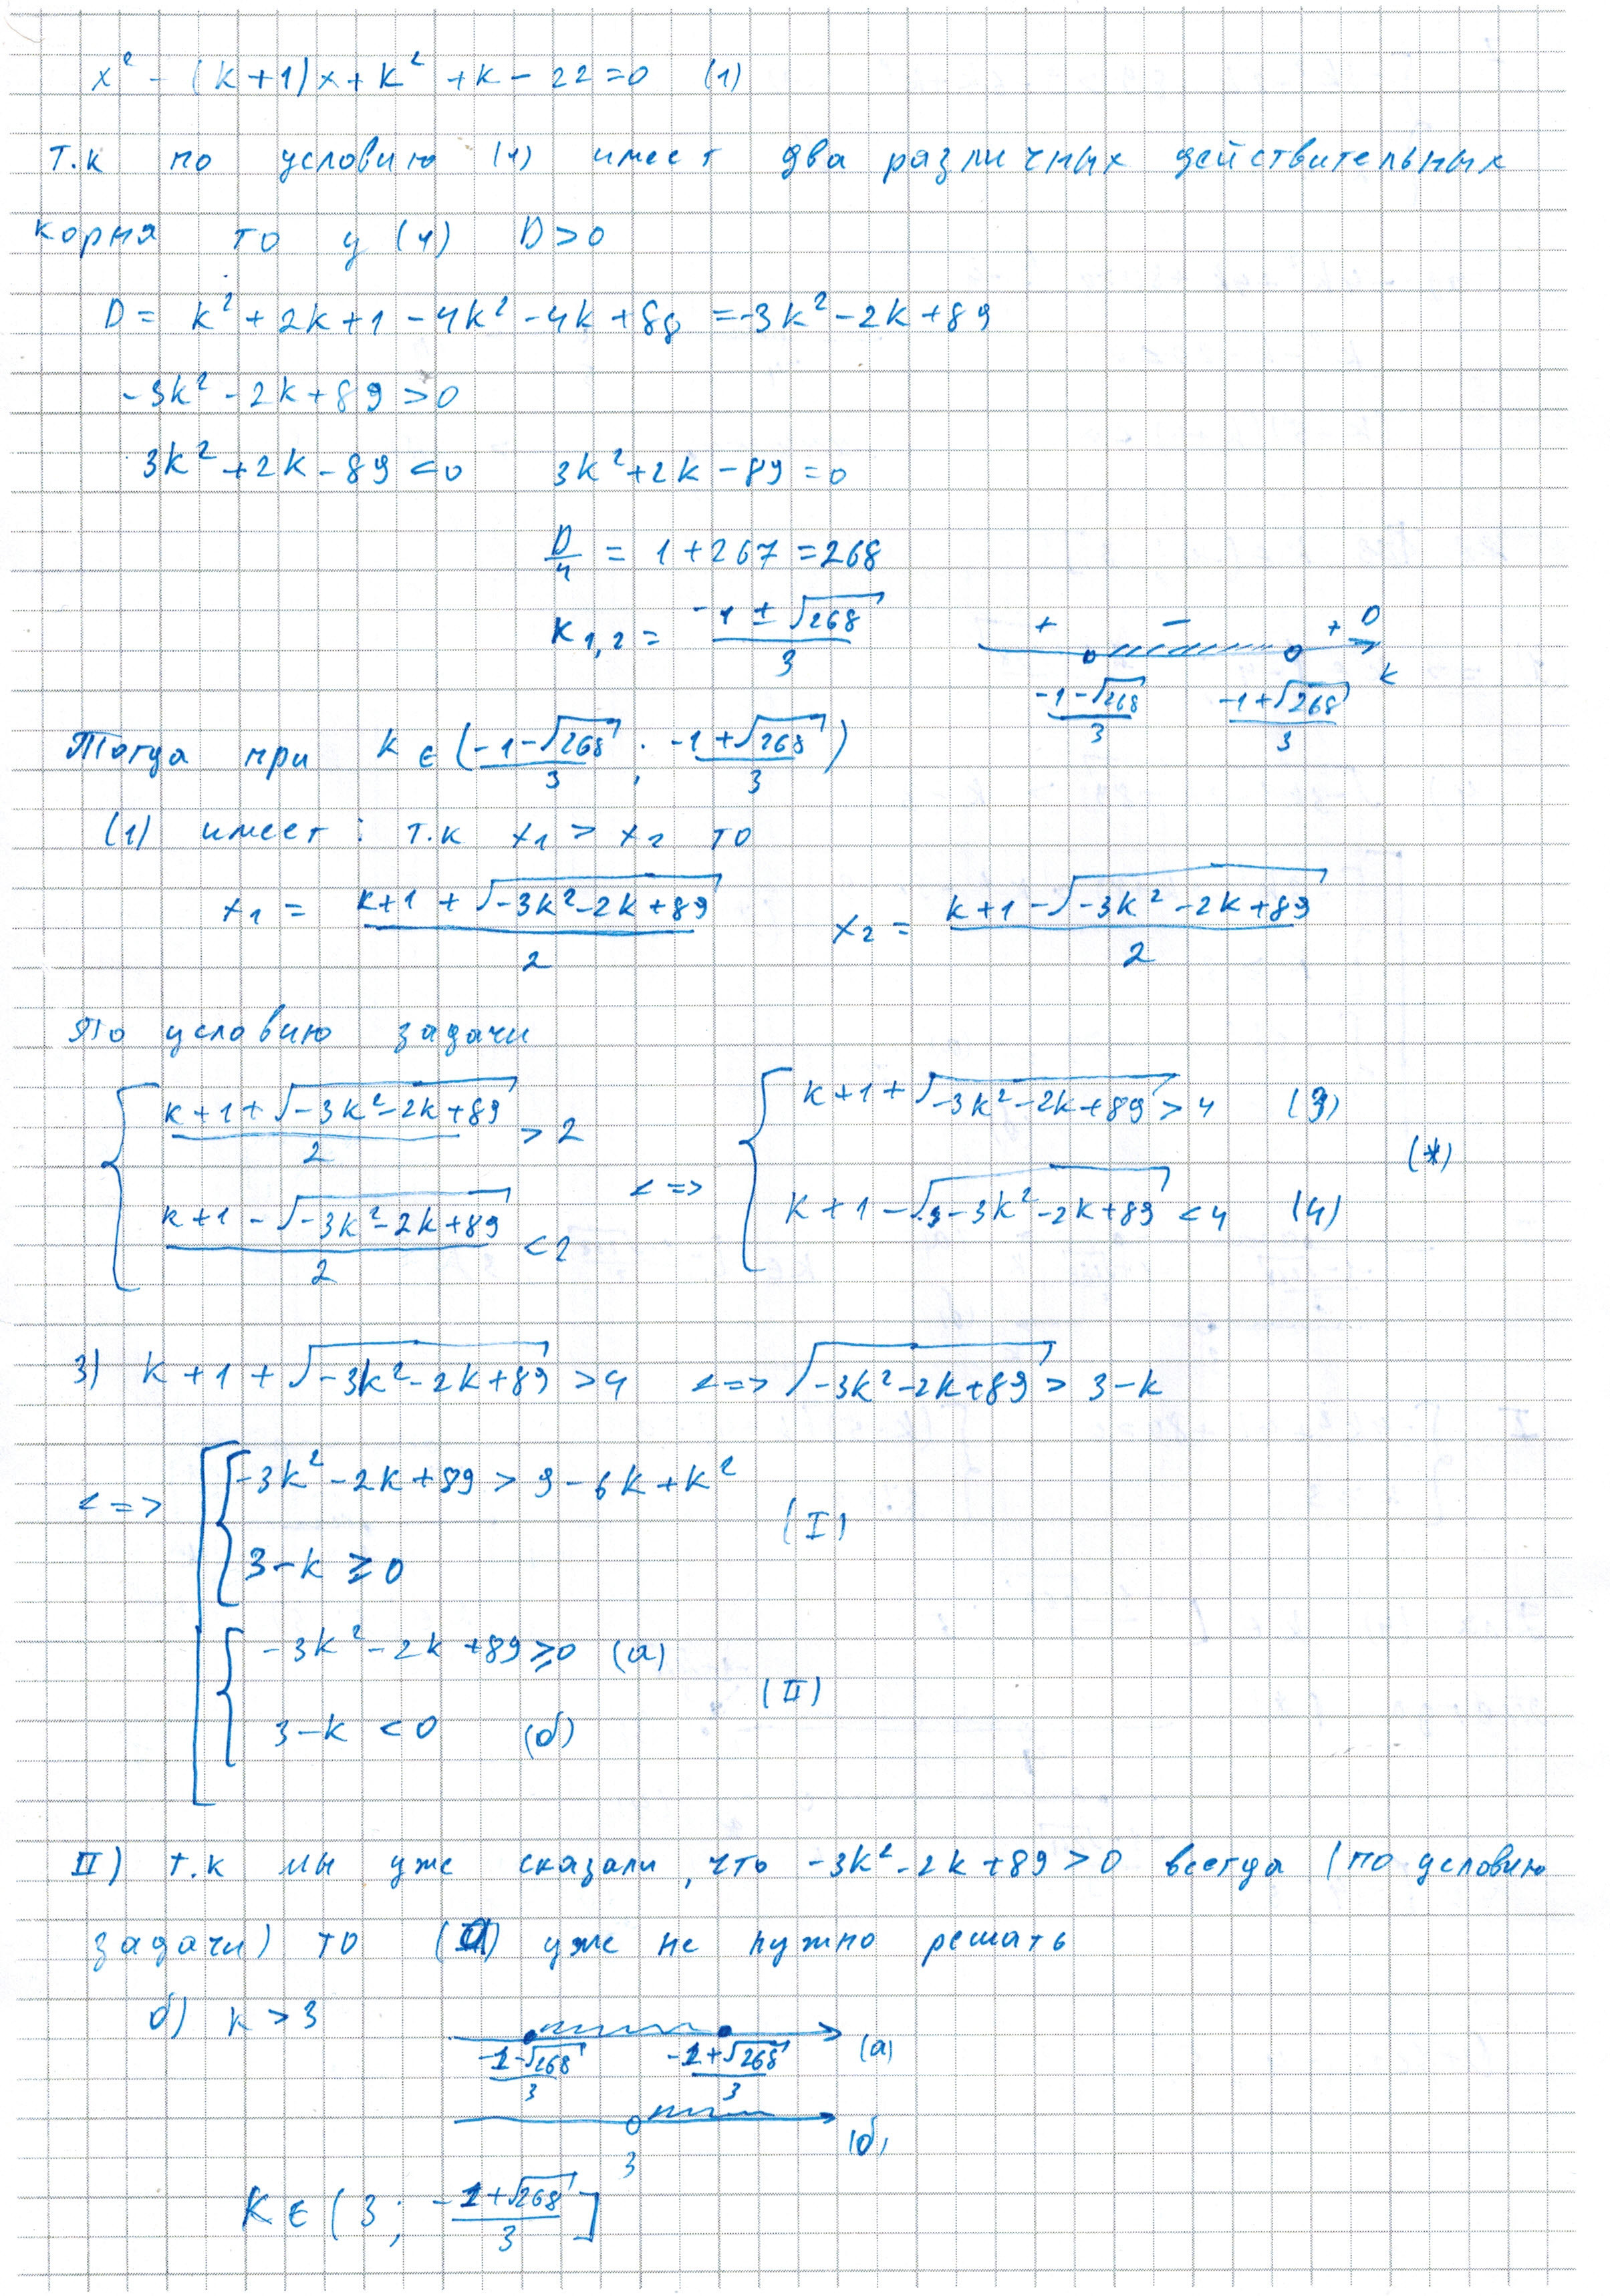 x² - (k+1)x + k² + k - 22 = 0 (1)
т.к по условию (1) имеет два различных действительных
корня то у (1) D > 0
D = k² + 2k + 1 - 4k² - 4k + 88 = -3k² - 2k + 89
-3k² - 2k + 89 > 0
3k² + 2k - 89 < 0 3k² + 2k - 89 = 0
D/4 = 1 + 267 = 268
k1,2 = (-1 ± √268)/3 + - + D
k
(-1-√268)/3 (-1+√268)/3
Тогда при k ∈ ((-1-√268)/3 ; (-1+√268)/3)
(1) имеет: т.к x1 > x2 то
x1 = (k+1+√(-3k²-2k+89))/2 x2 = (k+1-√(-3k²-2k+89))/2
По условию задачи
{ (k+1+√(-3k²-2k+89))/2 > 2 <=> { k+1+√(-3k²-2k+89) > 4 (3)
(*)
(k+1-√(-3k²-2k+89))/2 < 2 k+1-√(-3k²-2k+89) < 4 (4)
3) k+1+√(-3k²-2k+89) > 4 <=> √(-3k²-2k+89) > 3-k
<=> [ { -3k²-2k+89 > 9-6k+k²
(I)
3-k ≥ 0
{ -3k²-2k+89 ≥ 0 (а)
(II)
3-k < 0 (б)
II) т.к мы уже сказали, что -3k²-2k+89 > 0 всегда (по условию
задачи) то (а) уже не нужно решать
б) k > 3
(-1-√268)/3 (-1+√268)/3 (а)
3 (б)
k ∈ (3 ; (-1+√268)/3]